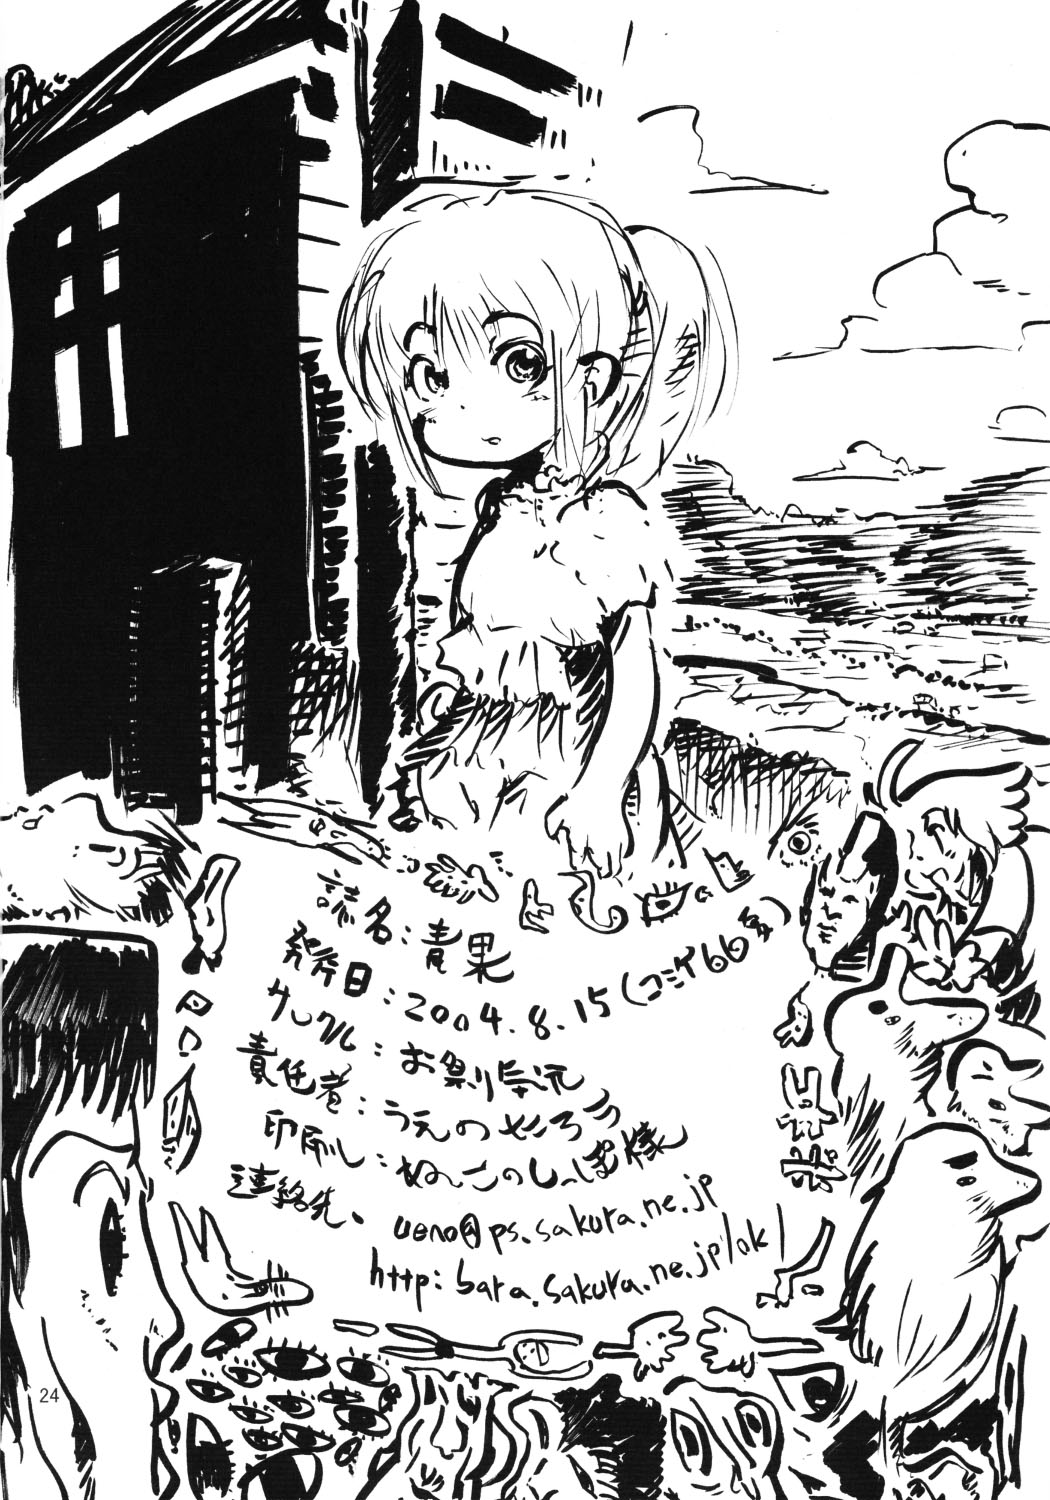 誌名：青果
発行日：2004.8.15(コミケ66日)
サークル：お祭り
責任者：うえの
印刷：ねこのしっぽ様
連絡先、ueno@ps.sakura.ne.jp
http:bara.sakura.ne.jp/ok/
24